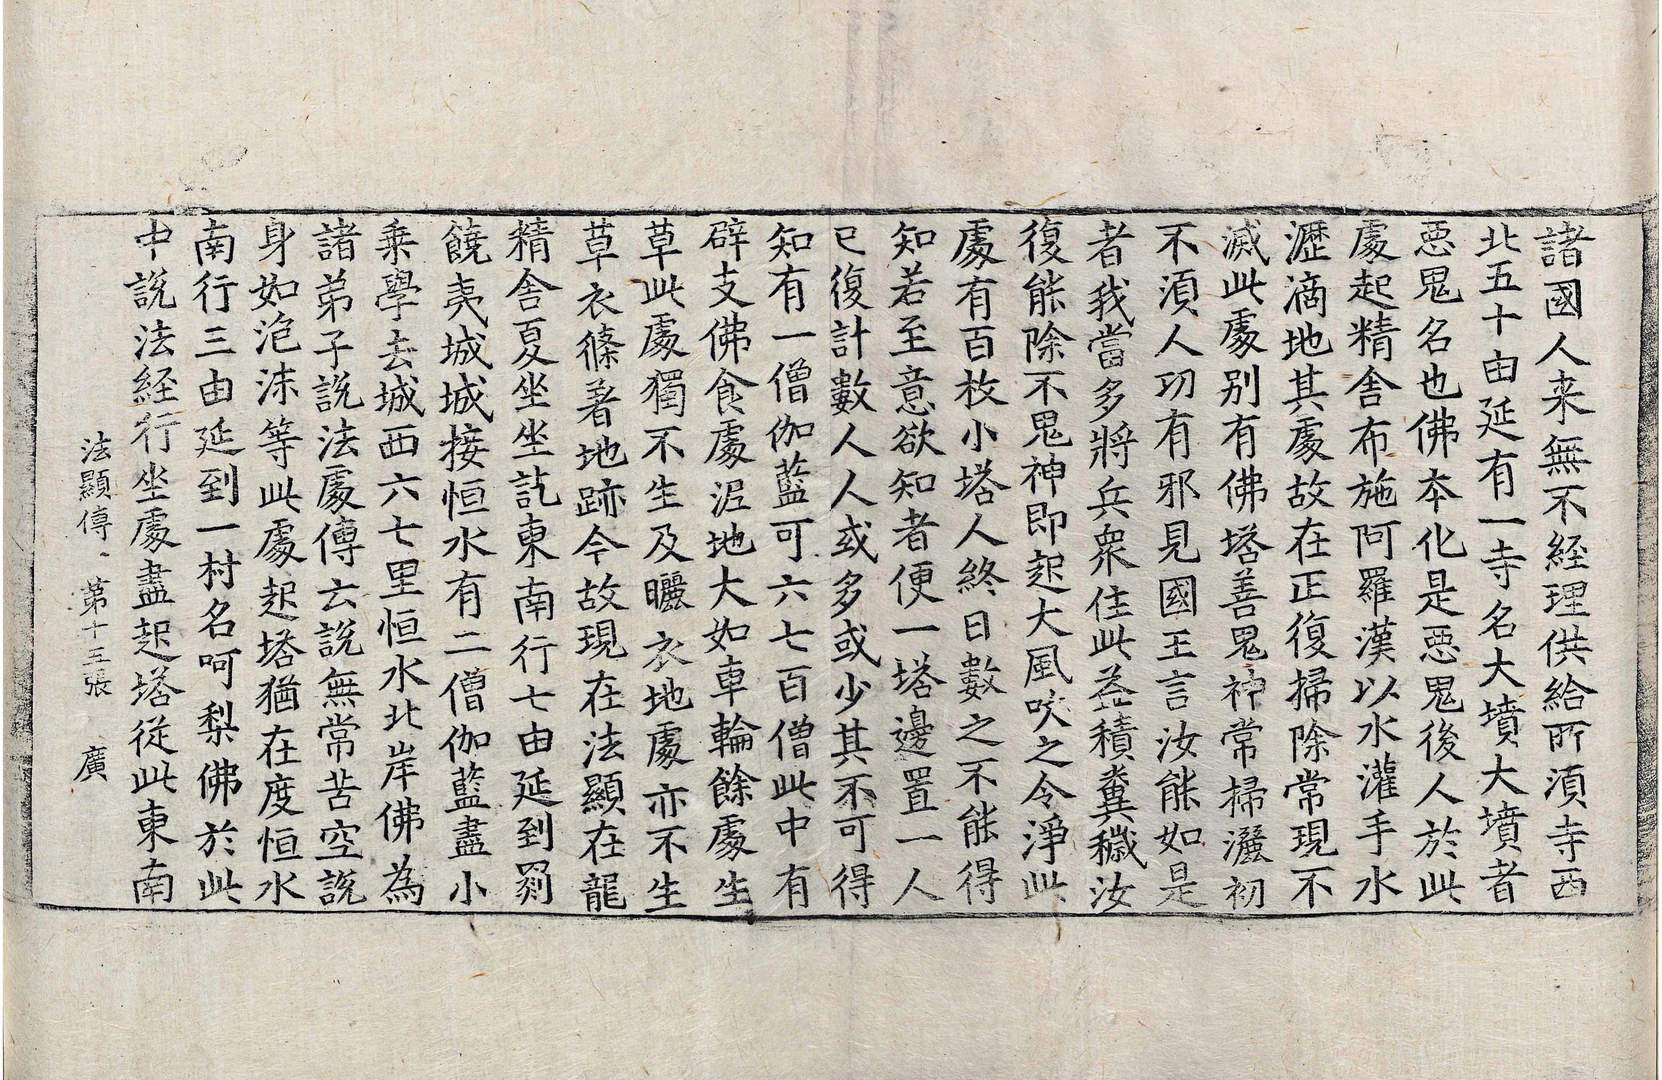 諸國人来無不経理供給所湏寺西
北五十由延有一寺名大墳大墳者
惡鬼名也佛本化是惡鬼後人於此
處起精舎布施阿羅漢以水灌手水
瀝滴地其處故在正復掃除常現不
滅此處别有佛塔善鬼神常掃灑初
不湏人功有邪見國王言汝能如是
者我當多將兵衆住此益積糞穢汝
復能除不鬼神即起大風吹之令淨此
處有百枚小塔人終日數之不能得
知若至意欲知者便一塔邊置一人
已復計數人人或多或少其不可得
知有一僧伽藍可六七百僧此中有
辟支佛食處泥地大如車輪餘處生
草此處獨不生及曬衣地處亦不生
草衣絛著地跡今故現在法顯在龍
精舎夏坐坐訖東南行七由延到罽
饒夷城城接恒水有二僧伽藍盡小
乗學去城西六七里恒水北岸佛為
諸弟子說法處傳云說無常苦空說
身如泡沫等此處起塔猶在度恒水
南行三由延到一村名呵梨佛於此
中說法経行坐處盡起塔従此東南
法顯傳 第十五張 廣